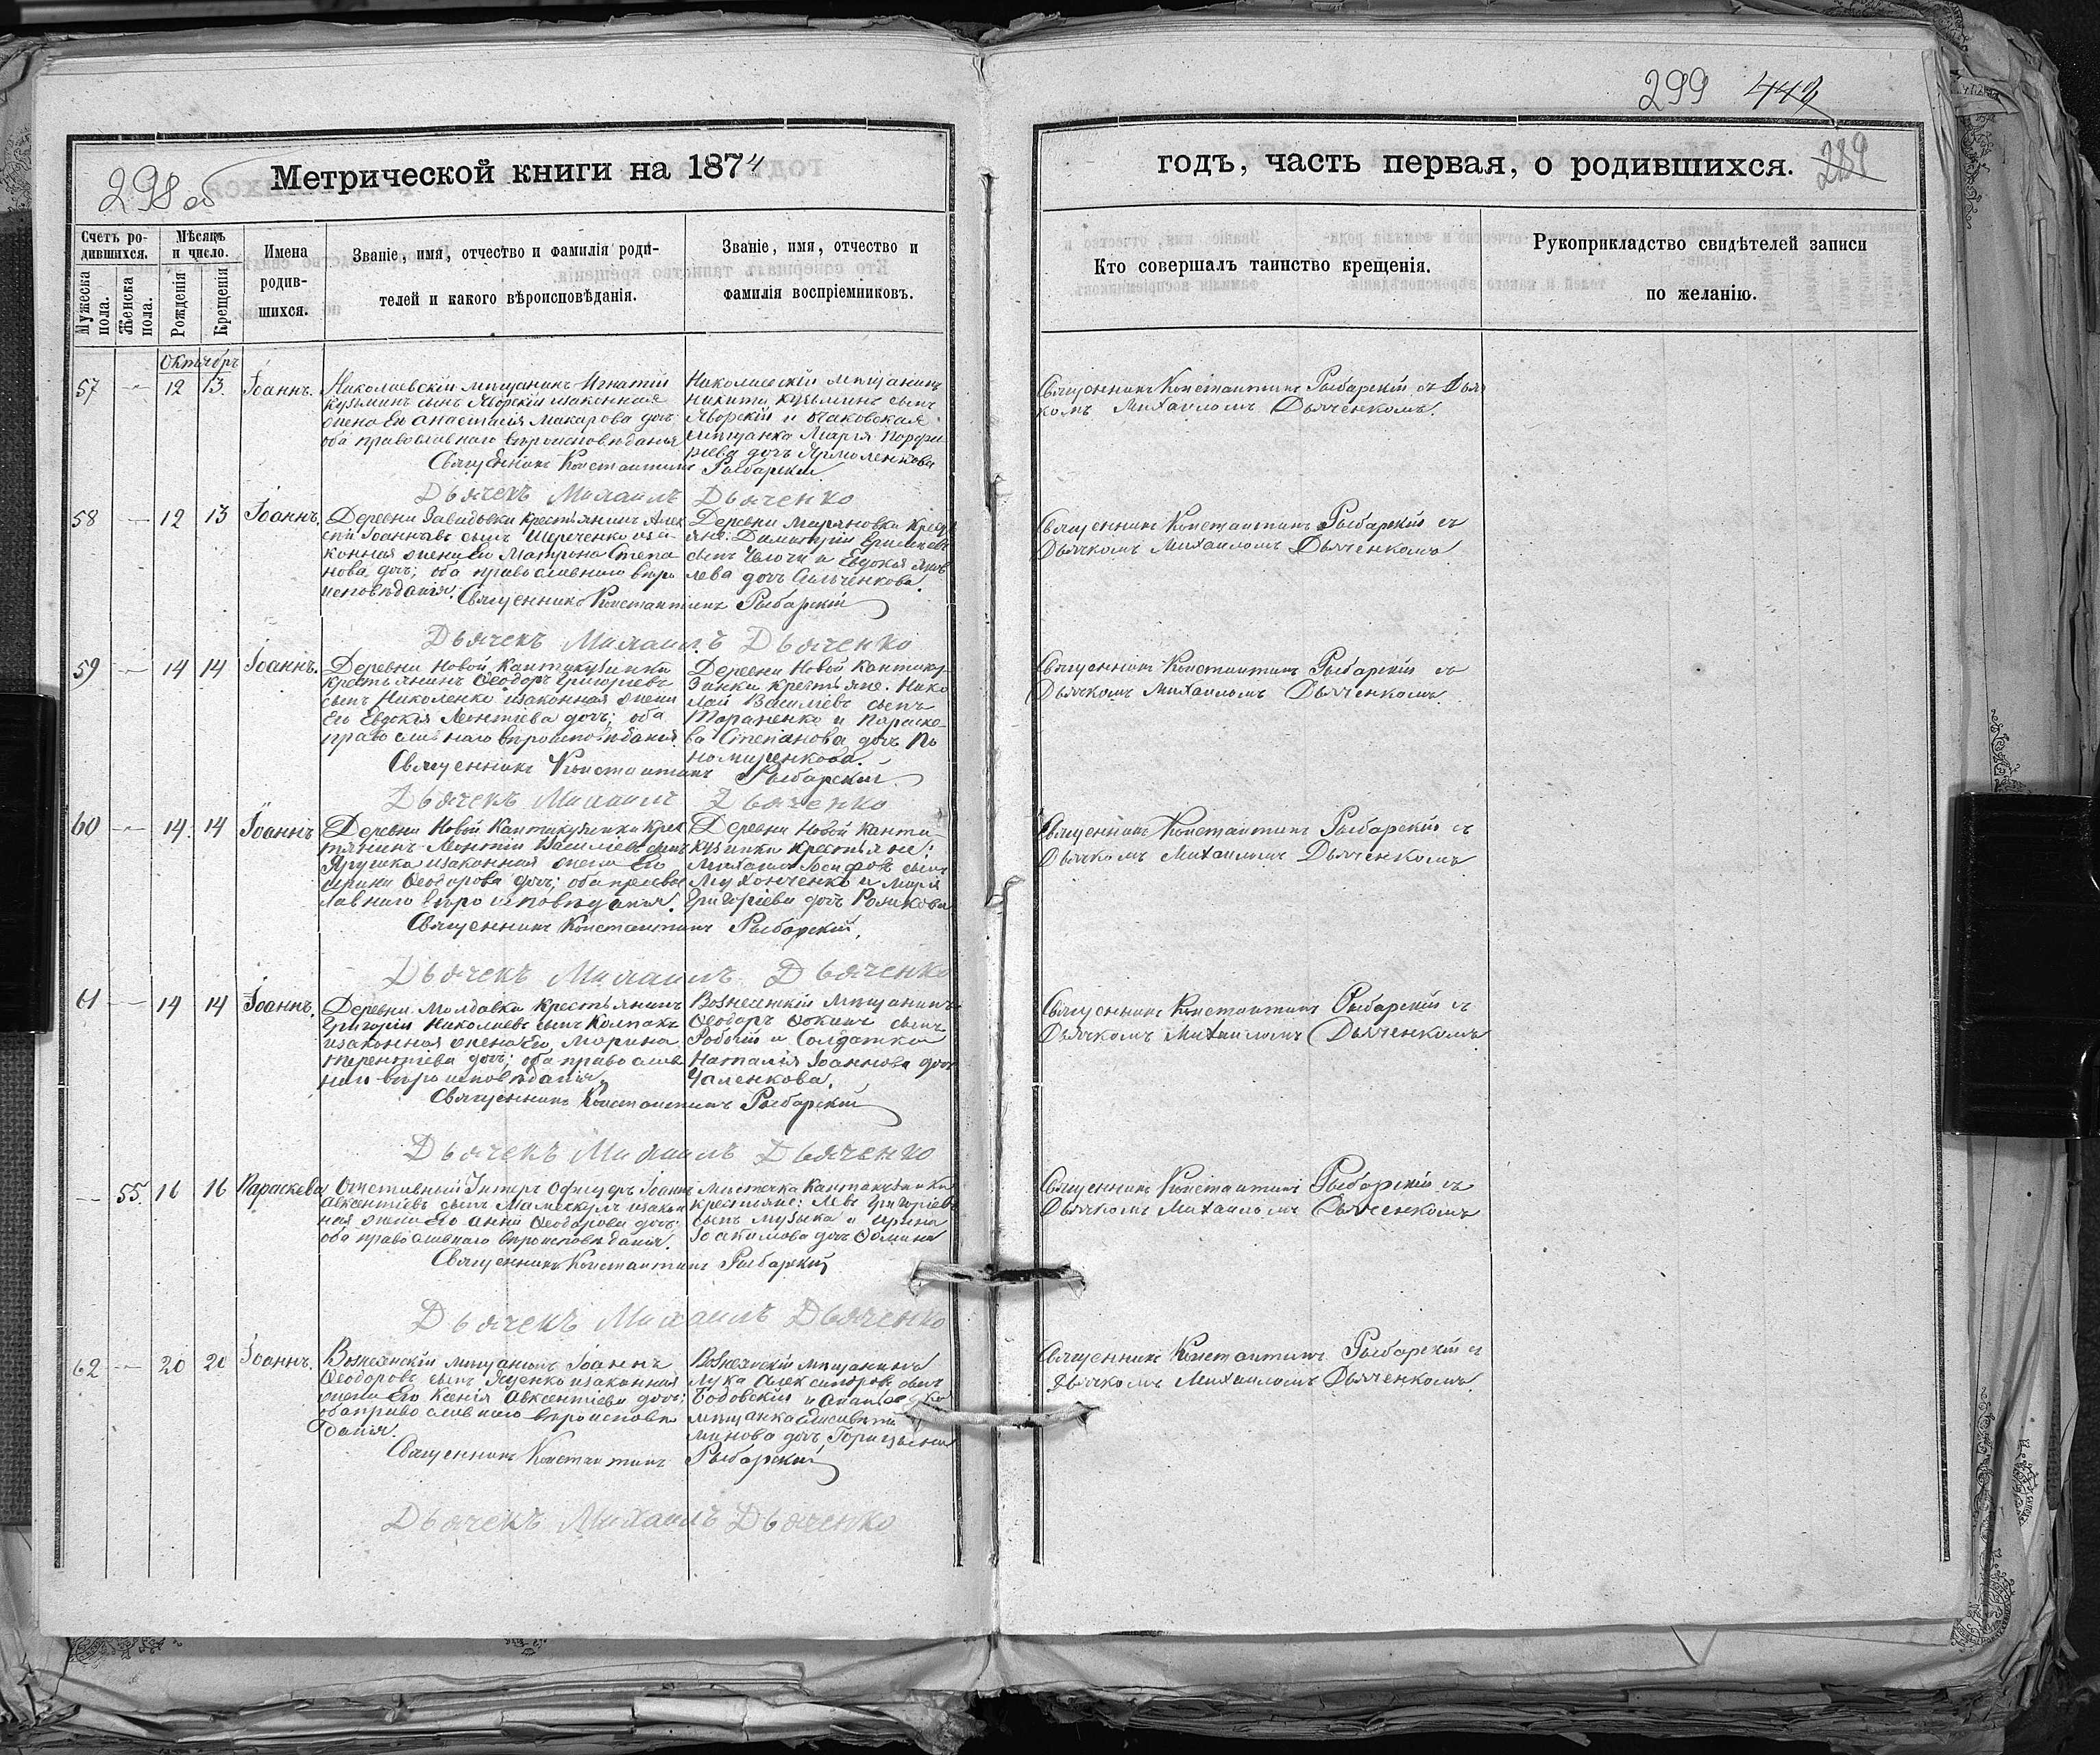 299 442
289
298 об
Метрической книги на 1874
годъ, часть первая, о родившихся.
Счетъ ро-
дившихся.
Мужеска
пола.
Женска
пола.
Мѣсяцъ
и число.
Рожденія
Крещенія
Имена
родив-
шихся.
Званіе, имя, отчество и фамилія роди-
телей и какого вѣроисповѣданія.
Званіе, имя, отчество и
фамилія воспріемниковъ.
Кто совершалъ таинство крещенія.
Рукоприкладство свидѣтелей записи
по желанію.
Октябрь
57 12 13. Іоаннъ.
Николаевскій мѣщанинъ Игнатій
Кузьминъ сынъ Яворскій и законная
жена Его Анастасія Макарова дочь
оба православнаго вѣроисповѣданія
Николаевскій мѣщанинъ
Никита Кузьминъ сынъ
Яворскій и Очаковская
мѣщанка Марія Порфи
рьева дочь Ярмоленкова
Священникъ Константинъ Рыбарскій
Дьячекъ Михаилъ Дьяченко
Священникъ Константинъ Рыбарскій съ Дья
комъ Михаиломъ Дьяченкомъ.
58 12 13 Іоаннъ.
Деревни Завадовки крестьянинъ Алек
сѣй Іоанновъ сынъ Шевченко и за-
конная жена Его Матрона Степа
нова дочь; оба православнаго вѣро
исповѣданія.
Деревни Марьяновки крестья
яне: Димитрій
сынъ и Евдокія Яков
лева дочь
Священникъ Константинъ Рыбарскій
Дьячекъ Михаилъ Дьяченко
Священникъ Константинъ Рыбарскій съ
Дьячкомъ Михаиломъ Дьяченкомъ
59 14 14 Іоаннъ.
Деревни Новой Кантакузинки
крестьянинъ Ѳеодоръ Григорьевъ
сынъ Николенко и законная жена
Его Евдокія Леонтьева дочь; оба
православнаго вѣроисповѣданія.
Деревни Новой Кантаку-
зинки крестьяне: Нико
лай Васильевъ сынъ
Тараненко и Параске-
ва Степанова дочь По
номаренкова.
Священникъ Константинъ Рыбарскій
Дьячекъ Михаилъ Дьяченко
Священникъ Константинъ Рыбарскій съ
Дьячкомъ Михаиломъ Дьяченкомъ
60 14. 14 Іоаннъ
Деревни Новой Кантакузинки крес
тьянинъ Леонтій Васильевъ сынъ
и законная жена Его
Ирина Ѳеодорова дочь; оба правос
лавнаго вѣроисповѣданія.
Деревни НовойКанта-
кузинки крестьяне:
Михаилъ Іосифовъ сынъ
и Марія
Григорьева дочь
Священникъ Константинъ Рыбарскій.
Дьячекъ Михаилъ Дьяченко
Священникъ Константинъ Рыбарскій съ
Дьячкомъ Михаиломъ Дьяченкомъ
61 14 14 Іоаннъ.
Деревни Молдавки крестьянинъ
Григорій Николаевъ сынъ Колпакъ
и законная жена Его Марина
Терентьева дочь; оба православ
наго вѣроисповѣданія.
Вознесенскій мѣщанинъ
Ѳеодоръ Ѳокинъ сынъ
и Солдатка
Наталія Іоаннова дочь
Чаленкова.
Священникъ Константинъ Рыбарскій
Дьячекъ Михаилъ Дьяченко
Священникъ Константинъ Рыбарскій съ
Дьячкомъ Михаиломъ Дьяченкомъ
55 16 16 Параскева
Унтеръ Офицеръ Іоаннъ
Авксентьевъ сынъ и закон
ная жена Его Анна Ѳеодорова дочь;
оба православнаго вѣроисповѣданія.
Мѣстечка Кантакузинки
крестьяне: Левъ Григорьевъ
сынъ Музыка и Ирина
Іоакимова дочь Ѳомина
Священникъ Константинъ Рыбарскій
Дьячекъ Михаилъ Дьяченко
Священникъ Константинъ Рыбарскій съ
Дьячкомъ Михаиломъ Дьяченкомъ
62 20 20 Іоаннъ.
Вознесенскій мѣщанинъ Іоаннъ
Ѳеодоровъ сынъ Яценко и законная
жена Его Ксенія Авксентіева дочь;
оба православнаго вѣроисповѣ
данія.
Вознесенскій мѣщанинъ
Лука Александровъ сынъ
Бодовскій и
мѣщанка Елисавета
дочь
Священникъ Константинъ Рыбарскій
Дьячекъ Михаилъ Дьяченко
Священникъ Константинъ Рыбарскій съ
Дьячкомъ Михаиломъ Дьяченкомъ.